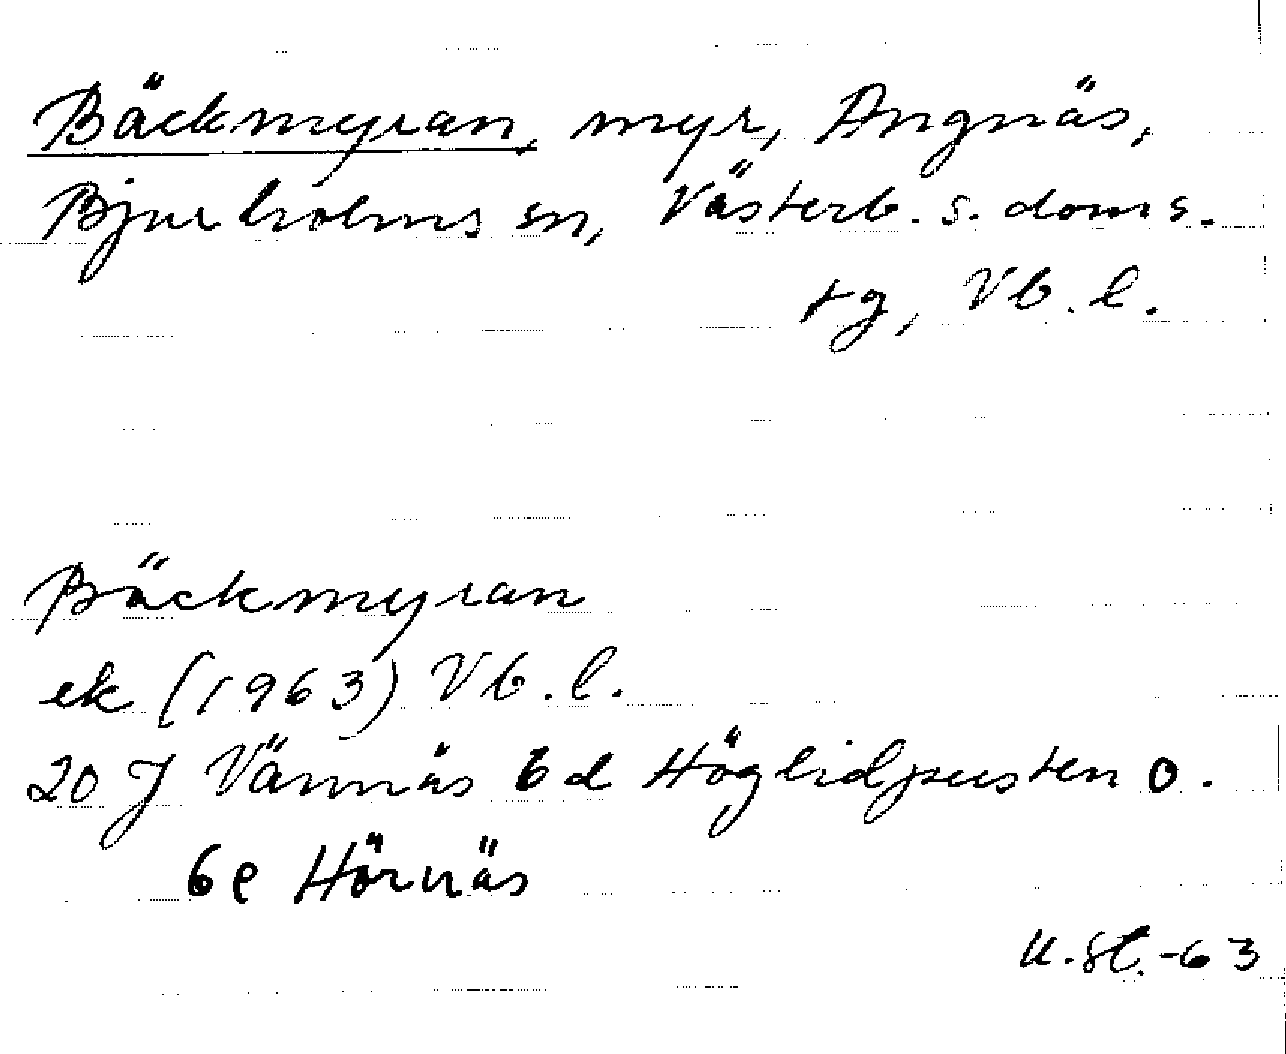 Bäckmyran, myr, Angnäs,
Bjurholms sn, Västerb. s. doms.
tg, Vb. l.
Bäckmyran
ek (1963) Vb. l.
20 J Vännäs 6d Höglidjusten o.
6e Hörnäs
U. St. -63